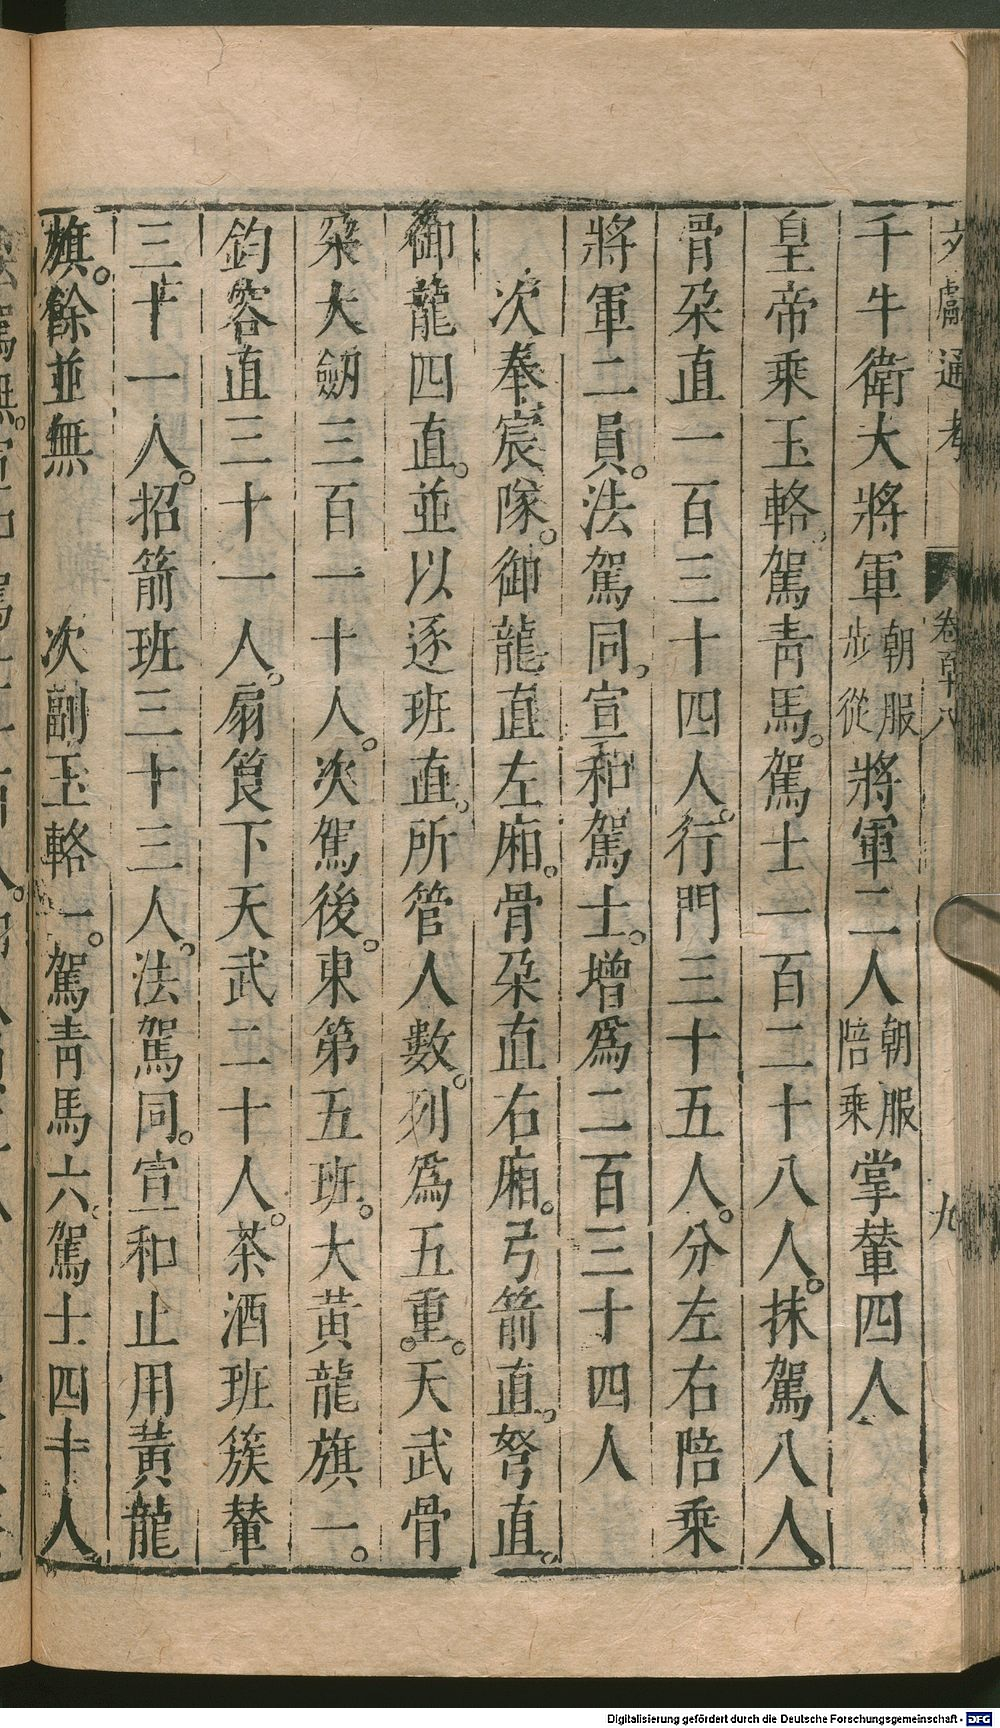 文獻通考 卷百十八 九
千牛衛大將軍朝服步從將軍二人朝服陪乗掌輦四人
皇帝乗玉輅。駕青馬。駕士一百二十八人。抹駕八人。
骨朶直一百三十四人。行門三十五人。分左右陪乗
將軍二員。法駕同。宣和駕士。增爲二百三十四人
次奉宸隊。御龍直左廂。骨朶直右廂。弓箭直。弩直。
御龍四直。並以逐班直。所管人數。列爲五重。天武骨
朶大劒三百一十人。次駕後。東第五班。大黄龍旗一。
鈞容直三十一人。扇筤下天武二十人。茶酒班簇輦
三十一人。招箭班三十三人。法駕同。宣和止用黄龍
旗。餘並無 次副玉輅一。駕青馬六。駕士四十人
Digitalisierung gefördert durch die Deutsche Forschungsgemeinschaft - DFG